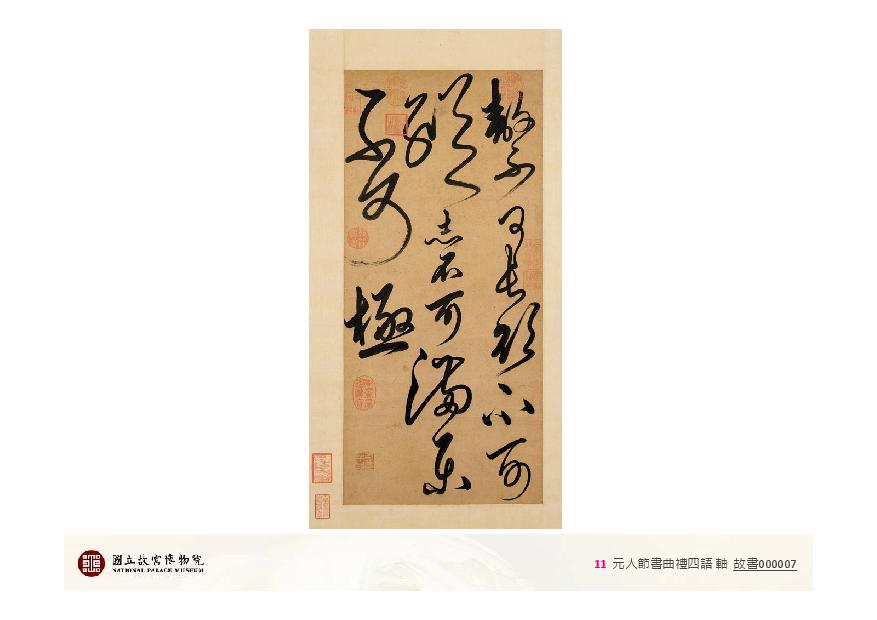 敖不可長欲不可
從志不可滿樂
不可極
國立故宮博物院
NATIONAL PALACE MUSEUM
11 元人節書曲禮四語 軸 故書000007